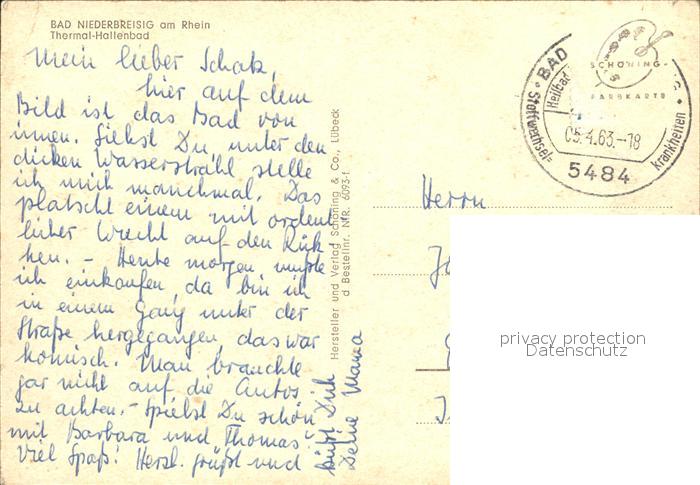 BAD NIEDERBREISIG am Rhein
Thermal-Hallenbad
Mein lieber Schatz,
hier auf dem
Bild ist das Bad von
innen. Siehst Du, unter den
dicken Wasserstrahl stelle
ich mich manchmal. Das
platscht einem mit ordent
licher Wucht auf den Rük
ken. - Heute morgen mußte
ich einkaufen, da bin ich
in einem Gang unter der
Straße hergegangen, das war
komisch. Man brauchte
gar nicht auf die Autos
zu achten. - Spielst Du schön
mit Barbara und Thomas?
Viel Spaß! Herzl. grüßt und
küßt Dich
Deine Mama
Hersteller und Verlag Schöning & Co., Lübeck
d Bestellnr. NrR. 6093-f
BAD
Heilbad
Stoffwechsel=
krankheiten
05.4.63.-18
5484
SCHÖNING-
FARBKARTE
Herrn
privacy protection
Datenschutz